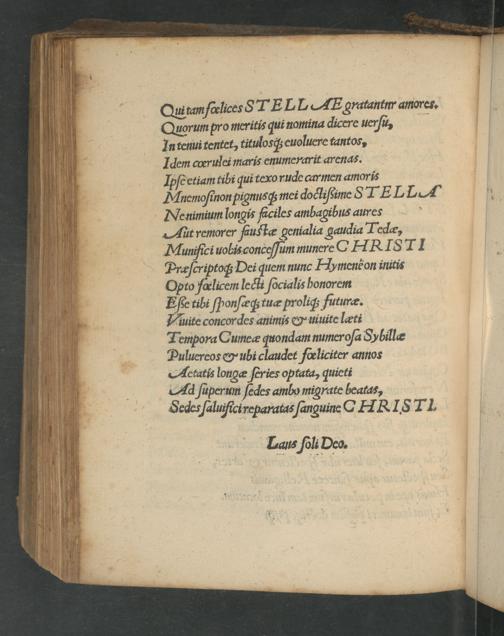 Qui tam fœlices STELLAE gratantnr amores.
Quorum pro meritis qui nomina dicere uersu,
In tenui tentet, titulosq; euoluere tantos,
Idem cœrulei maris enumerarit arenas.
Ipse etiam tibi qui texo rude carmen amoris
Mnemosinon pignusq; mei doctissime STELLA
Ne nimium longis faciles ambagibus aures
Aut remorer faustæ genialia gaudia Tedæ,
Munifici uobis concessum munere CHRISTI
Præscriptoq; Dei quem nunc Hymenêon initis
Opto fœlicem lecti socialis honorem
Esse tibi sponsæq; tuæ proliq; futuræ.
Viuite concordes animis & uiuite læti
Tempora Cumeæ quondam numerosa Sybillæ
Puluereos & ubi claudet fœliciter annos
Aetatis longæ series optata, quieti
Ad superum sedes ambo migrate beatas,
Sedes saluifici reparatas sanguine CHRISTI.
Laus soli Deo.